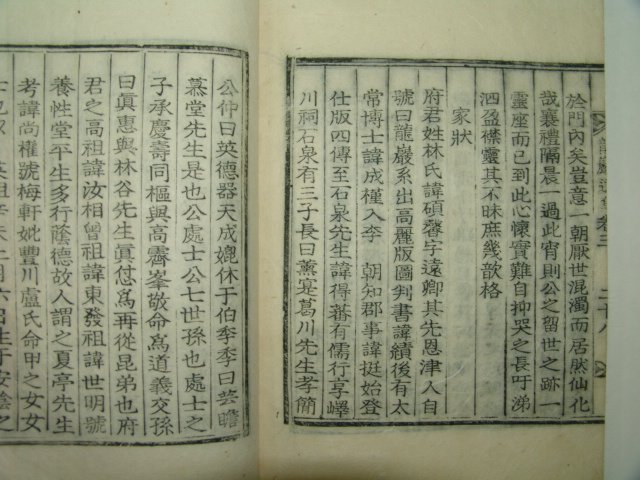 於門內矣豈意一朝厭世混濁而居然仙化
哉襄禮隔晨一過此宵則公之留世之跡一
靈座而已到此心懷實難自抑哭之長吁涕
泗盈襟靈其不昧庶幾歆格
家狀
府君姓林氏諱碩馨字遠卿其先恩津人自
號曰龍巖系出高麗版圖判書諱績後有太
常博士諱成槿入李 朝知郡事諱挺始登
仕版四傳至石泉先生諱得蕃有儒行享嶧
川祠石泉有三子長曰薰寔葛川先生孝簡
公仲曰英德器天成媲休于伯季季曰芸瞻
慕堂先生是也公處士公七世孫也處士之
子承慶壽同樞與高霽峯敬命爲道義交孫
曰眞惠與林谷先生眞怤爲再從昆弟也府
君之高祖諱汝相曾祖諱東發祖諱世明號
養性堂平生多行蔭德故人謂之夏亭先生
考諱尚權號梅軒妣豐川盧氏命甲之女女
卷三
二十八